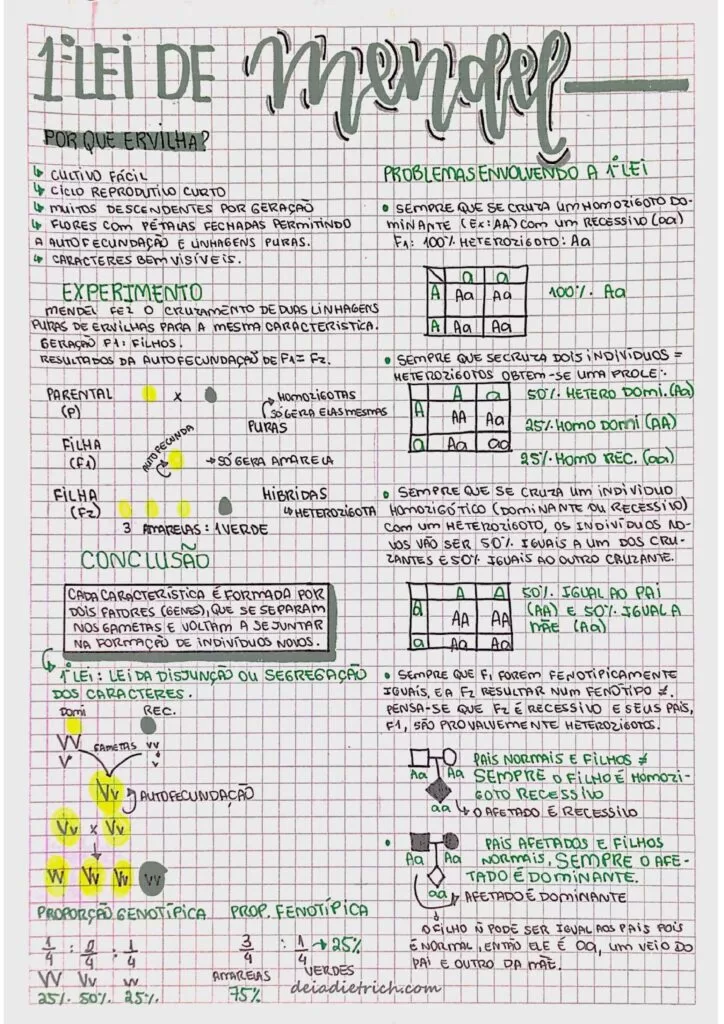 1ª LEI DE mendel
POR QUE ERVILHA?
↳ CULTIVO FÁCIL
↳ CICLO REPRODUTIVO CURTO
↳ MUITOS DESCENDENTES POR GERAÇÃO
↳ FLORES COM PÉTALAS FECHADAS PERMITINDO
A AUTOFECUNDAÇÃO E LINHAGENS PURAS.
↳ CARACTERES BEM VISÍVEIS.
EXPERIMENTO
MENDEL FEZ O CRUZAMENTO DE DUAS LINHAGENS
PURAS DE ERVILHAS PARA A MESMA CARACTERISTICA.
GERAÇÃO F1: FILHOS.
RESULTADOS DA AUTOFECUNDAÇÃO DE F1 = F2.
PARENTAL
(P)
x
→ HOMOZIGOTAS
SÓ GERA ELAS MESMAS
PURAS
FILHA
(F1)
AUTOFECUNDA
→ SÓ GERA AMARELA
FILHA
(F2)
HÍBRIDAS
↳ HETEROZIGOTA
3 AMARELAS : 1 VERDE
CONCLUSÃO
CADA CARACTERÍSTICA É FORMADA POR
DOIS FATORES (GENES), QUE SE SEPARAM
NOS GAMETAS E VOLTAM A SE JUNTAR
NA FORMAÇÃO DE INDIVÍDUOS NOVOS.
1ª LEI: LEI DA DISJUNÇÃO OU SEGREGAÇÃO
DOS CARACTERES.
Domi REC.
VV GAMETAS vv
V v
Vv AUTOFECUNDAÇÃO
Vv x Vv
VV Vv Vv vv
PROPORÇÃO GENOTÍPICA
1/4 : 2/4 : 1/4
VV Vv vv
25% 50% 25%
PROP. FENOTÍPICA
3/4 : 1/4 → 25%
AMARELAS VERDES
75%
PROBLEMAS ENVOLVENDO A 1ª LEI
• SEMPRE QUE SE CRUZA UM HOMOZIGOTO DO-
MINANTE (Ex: AA) COM UM RECESSIVO (aa)
F1: 100% HETEROZIGOTO: Aa
a a
A Aa Aa
A Aa Aa
100% Aa
• SEMPRE QUE SE CRUZA DOIS INDIVÍDUOS =
HETEROZIGOTOS OBTEM-SE UMA PROLE:
A a
A AA Aa
a Aa aa
50% HETERO DOMI. (Aa)
25% HOMO DOMI (AA)
25% HOMO REC. (aa)
• SEMPRE QUE SE CRUZA UM INDIVÍDUO
HOMOZIGÓTICO (DOMINANTE OU RECESSIVO)
COM UM HETEROZIGOTO, OS INDIVÍDUOS NO-
VOS VÃO SER 50% IGUAIS A UM DOS CRU-
ZANTES E 50% IGUAIS AO OUTRO CRUZANTE.
A A
A AA AA
a Aa Aa
50% IGUAL AO PAI
(AA) E 50% IGUAL A
MÃE (Aa)
• SEMPRE QUE F1 FOREM FENOTIPICAMENTE
IGUAIS, E A F2 RESULTAR NUM FENÓTIPO ≠.
PENSA-SE QUE F2 É RECESSIVO E SEUS PAIS,
F1, SÃO PROVALMENTE HETEROZIGOTOS.
Aa Aa
aa
PAIS NORMAIS E FILHOS ≠
SEMPRE O FILHO É HOMOZI-
GOTO RECESSIVO
↳ O AFETADO É RECESSIVO
• Aa Aa
aa
PAIS AFETADOS E FILHOS
NORMAIS, SEMPRE O AFE-
TADO É DOMINANTE.
AFETADO É DOMINANTE
O FILHO Ñ PODE SER IGUAL AOS PAIS POIS
É NORMAL, ENTÃO ELE É aa, UM VEIO DO
PAI E OUTRO DA MÃE.
deiadietrich.com